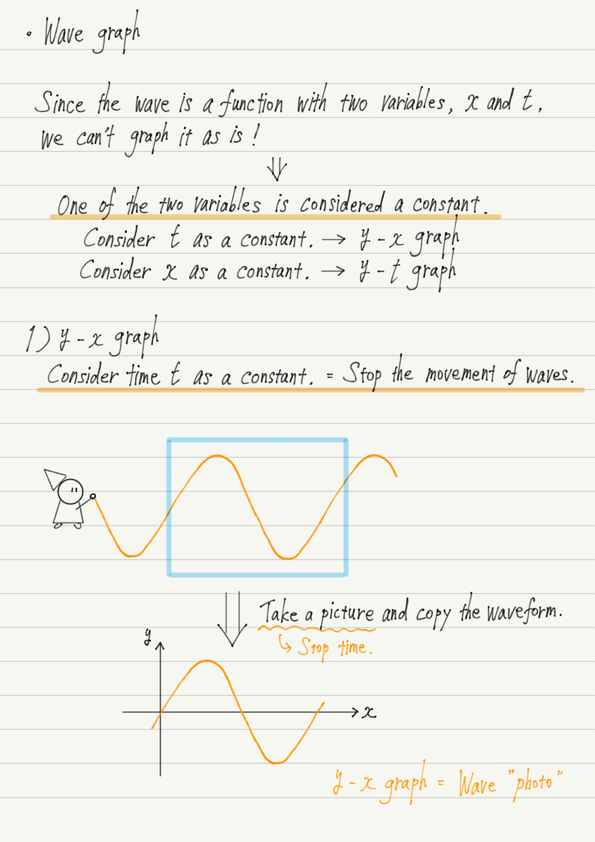 • Wave graph
Since the wave is a function with two variables, x and t,
we can't graph it as is!
⇓
One of the two variables is considered a constant.
Consider t as a constant. → y-x graph
Consider x as a constant. → y-t graph
1) y-x graph
Consider time t as a constant. = Stop the movement of waves.
Take a picture and copy the waveform.
↳ Stop time.
y
x
y-x graph = Wave "photo"